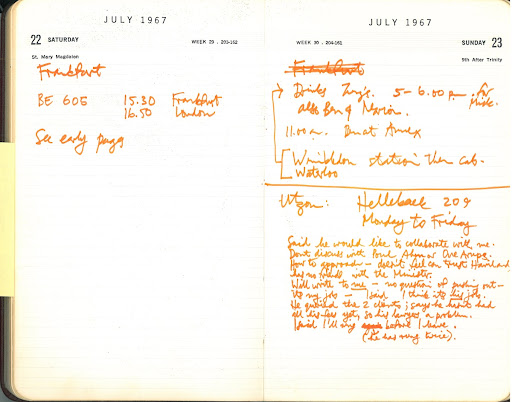 JULY 1967
22 SATURDAY
WEEK 29 . 203-162
St. Mary Magdalen
Frankfurt
BE 605 15.30 Frankfurt
16.50 London
See early pages
JULY 1967
WEEK 30 . 204-161
SUNDAY 23
9th After Trinity
Frankfurt
Drinks 5 - 6.00 p.m. for
also Ben &
11.00 a.m. Ben at
Wimbledon station then cab.
Waterloo
Utzon: Hellebaek 209
Monday to Friday
Said he would like to collaborate with me.
Don't discuss with Ove Arups.
How to approach - doesn't feel can trust
has no friends with the Minister.
Will write to me - no question of pushing out -
its my job - I said I think its his job.
He queried the 2 clients; says he hasn't had
all his fees yet, so his lawyer a problem.
I said I'll ring before I leave.
(he has rung twice).